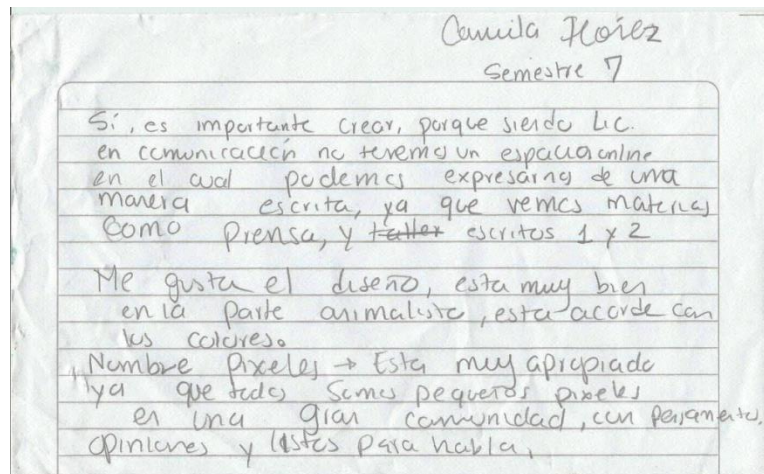 Camila Florez
Semestre 7
Si, es importante crear, porque siendo Lic.
en comunicación no tenemos un espacio online
en el cual podemos expresarnos de una
manera escrita, ya que vemos materias
como prensa, y taller escritos 1 y 2
Me gusta el diseño, esta muy bien
en la parte animalista, esta acorde con
los colores.
Nombre Pixeles → Esta muy apropiado
ya que todos somos pequeños pixeles
en una gran comunidad, con pensamientos,
opiniones y listos para habla,